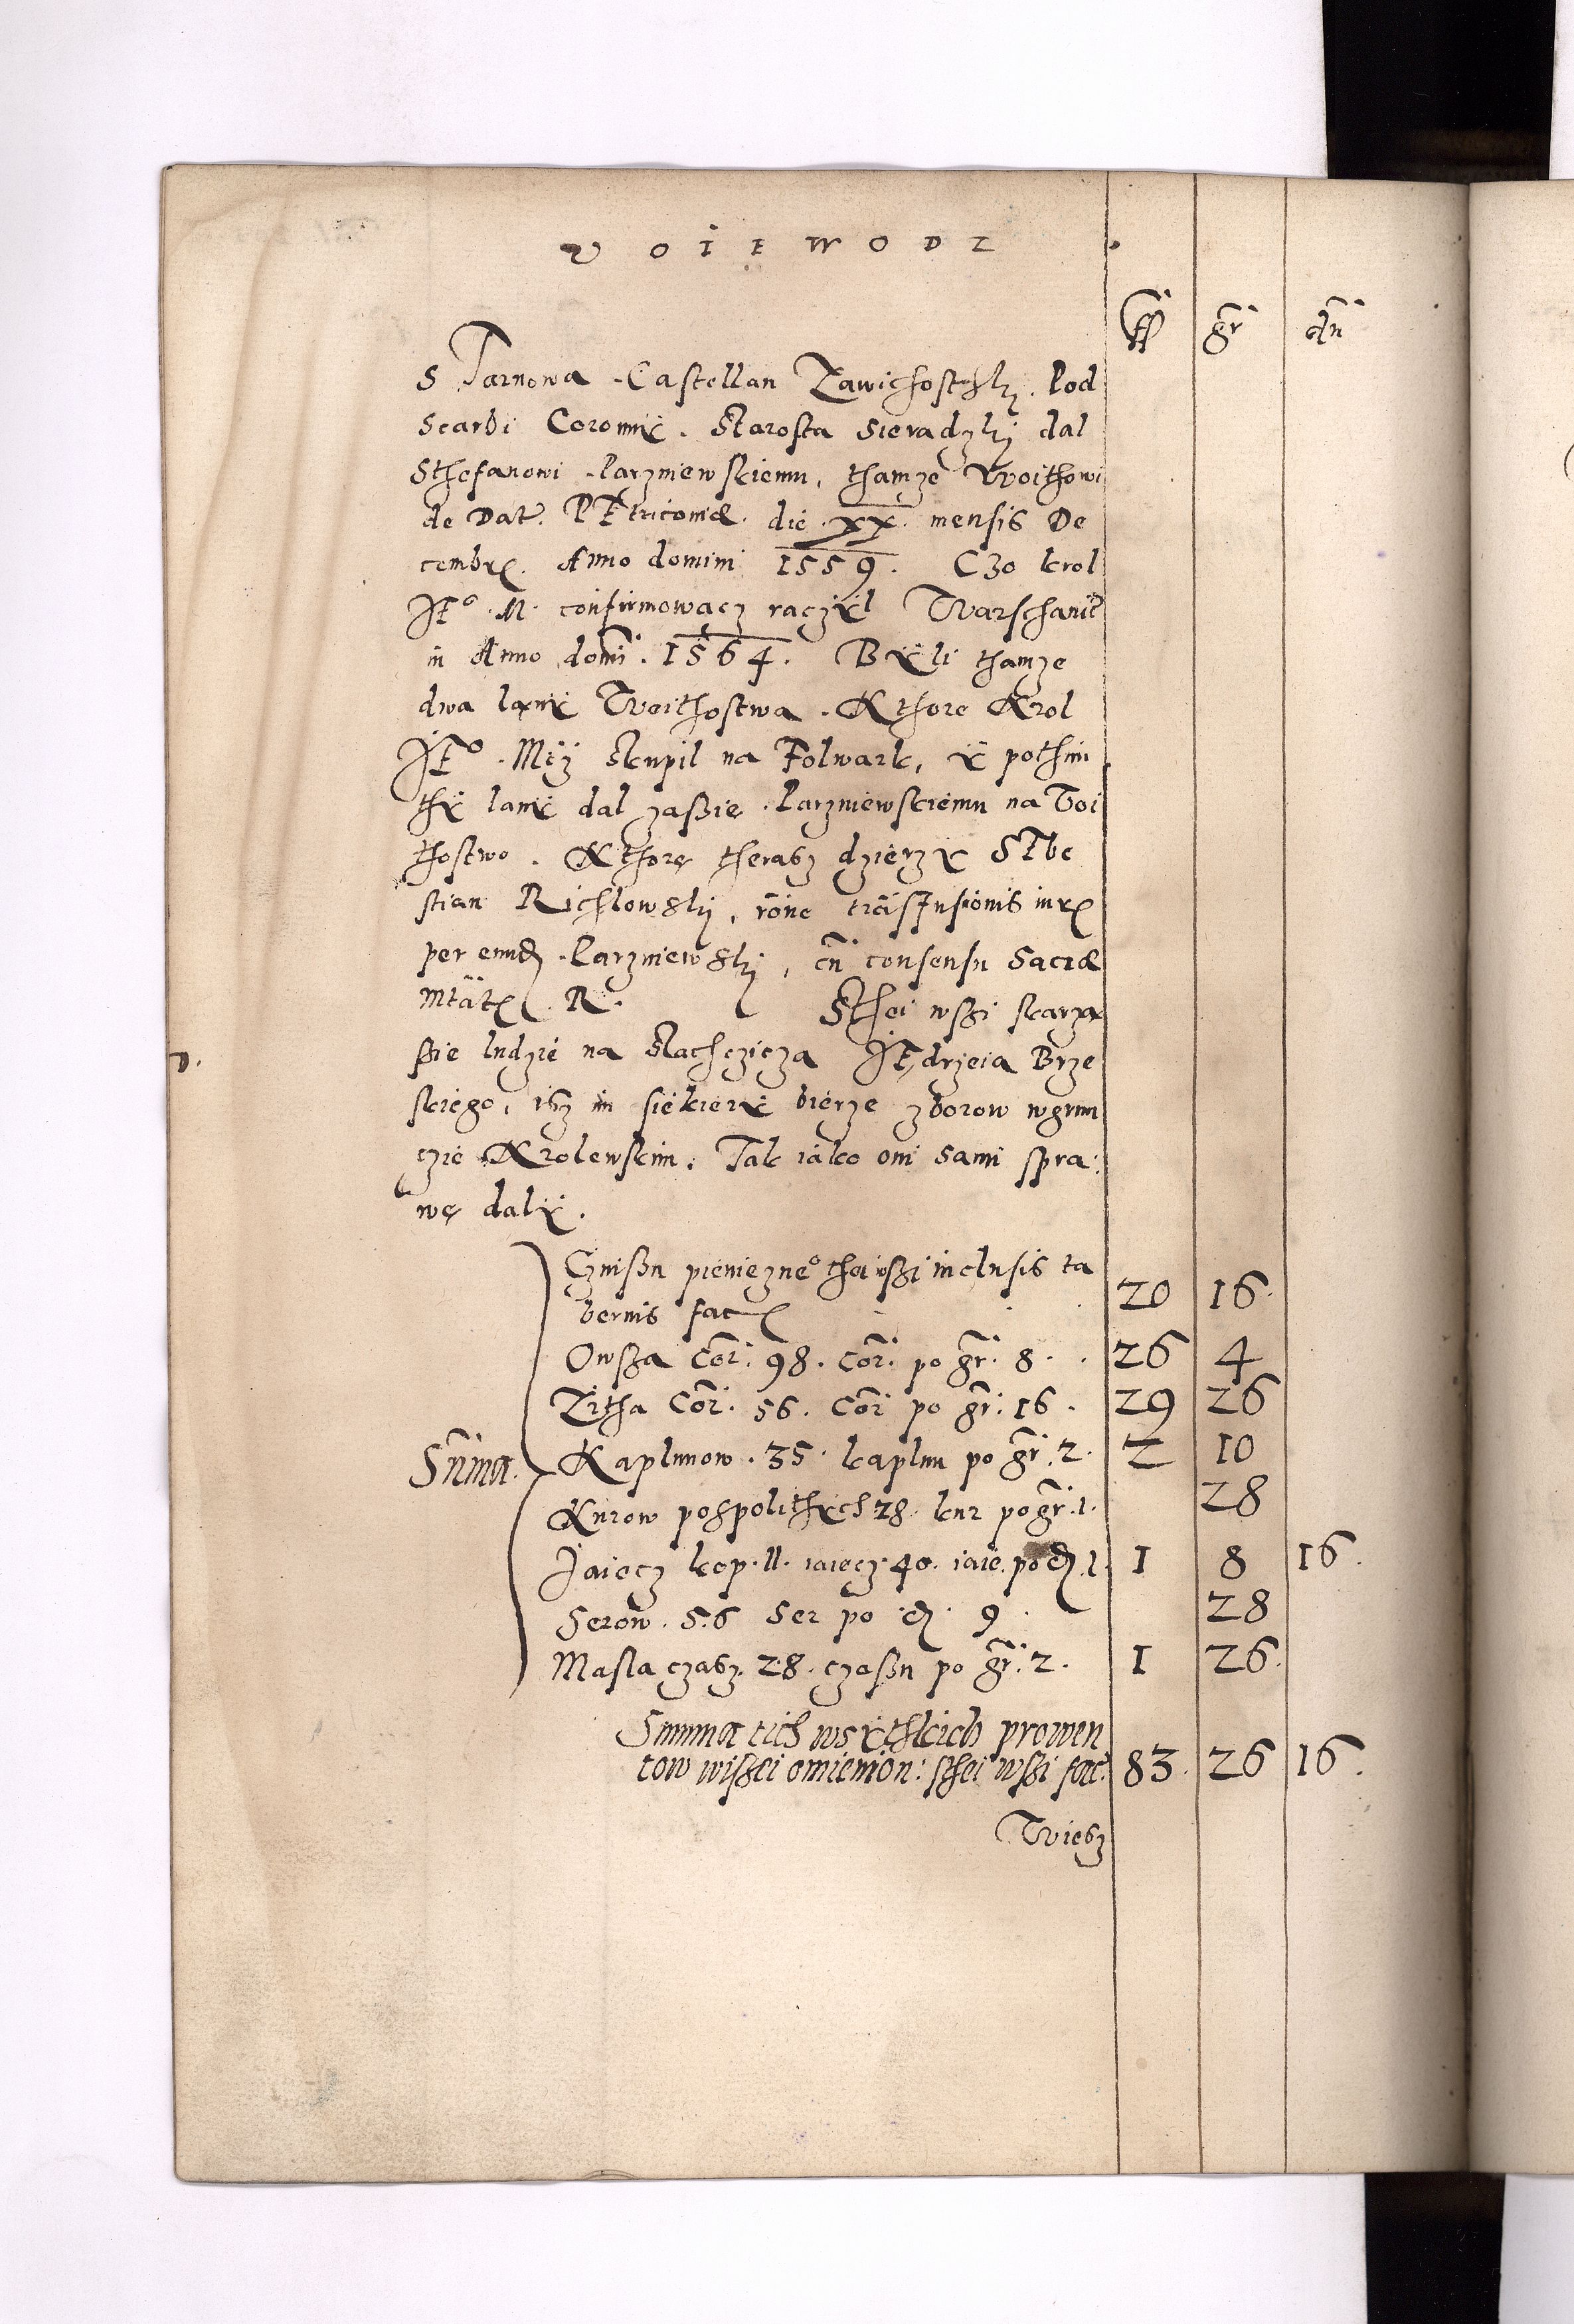 VOIEWODZ
fl gr dn
S Tarnowa Castellan Zawichosthsky. Pod
scarbi Coronny. Starosta Sieradzky dal
Sthefanowi Parzniewskiemu, thamze Woithowi
de Dat. PEtricoviæ. die. XX. mensis De
cembr. Anno domini 1559. Czo krol
JE° M. confirmowacz raczyl Warschaviæ
in Anno domi. 1564. Byli thamze
dwa lany Woithostwa. Kthore Krol
JE° Mczy skupil na Folwark, y pothim
thy lany dal zaßie Parzniewskiemu na Voi
thostwo. Kthore therasz dzierzy SEbe
stian Richlowsky, rone iur
per eund. Parzniewsky, cu consensu Sacræ
Mtät. R. Sthei wßi scarza
ßie ludzie na Slachczicza JEdrzeia Brze
skiego, isz im siekiery bierze zborow wgrun
czie Krolewskim. Tak iako oni sami spra:
we daly.
D.
Czinßu pienieznego thei wßi inclusis ta
bernis fac. 20 16.
Owßa Cor. 98. Cor. po gr. 8. 26 4
Zitha Cor. 56. Cor po gr. 16. 29 26
Suma. Kaplunow. 35. kaplun po gr. 2. 2 10
Kurow pospolithych 28. kur po gr. 1. 28
Jaiecz kop. 11. iaiecz. 40. iaie. po d. 1. 1 8 16.
Serow. 56 Ser po d. 9. 28
Masla czasz. 28. czaßu po gr. 2. 1 26.
Summa tich wsythkich prowen
tow wißei omienion: sthei wßi fac: 83. 26 16.
Wiesz